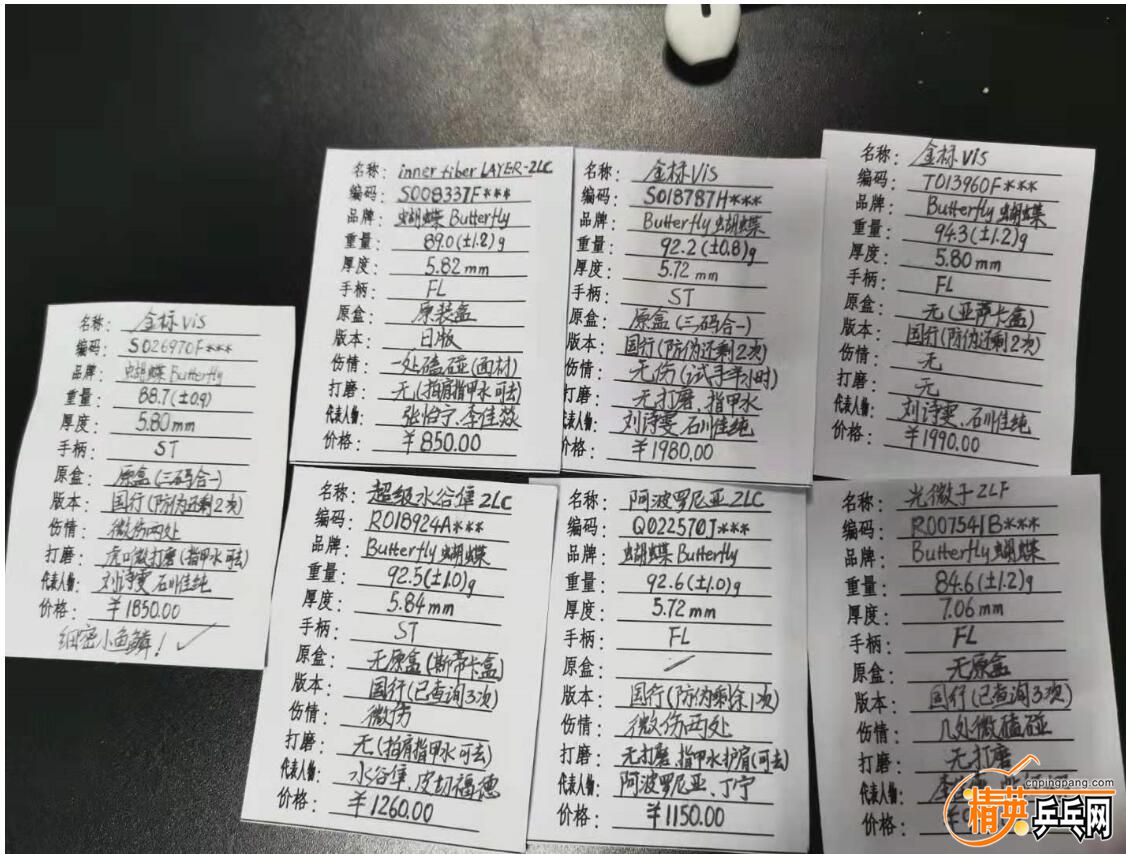 名称：金标Vis
编码：S026970F***
品牌：蝴蝶 Butterfly
重量：88.7(±0.9)
厚度：5.80mm
手柄：ST
原盒：原盒(三码合一)
版本：国行(防伪还剩2次)
伤情：微伤两处
打磨：虎口微打磨(指甲水可去)
代表人物：刘诗雯 石川佳纯
价格：￥1850.00
细密小鱼鳞！✓
名称：inner fiber LAYER-ZLC
编码：S008337F***
品牌：蝴蝶 Butterfly
重量：89.0(±1.2)g
厚度：5.82mm
手柄：FL
原盒：原装盒
版本：日版
伤情：一处磕碰(面材)
打磨：无(拍肩指甲水可去)
代表人物：张怡宁、李佳燚
价格：￥850.00
名称：金标Vis
编码：S018787H***
品牌：Butterfly 蝴蝶
重量：92.2(±0.8)g
厚度：5.72mm
手柄：ST
原盒：原盒(三码合一)
版本：国行(防伪还剩2次)
伤情：无伤(试手半小时)
打磨：无打磨、指甲水
代表人物：刘诗雯、石川佳纯
价格：￥1980.00
名称：金标Vis
编码：T013960F***
品牌：Butterfly 蝴蝶
重量：94.3(±1.2)g
厚度：5.80mm
手柄：FL
原盒：无(亚蒂卡盒)
版本：国行(防伪还剩2次)
伤情：无
打磨：无
代表人物：刘诗雯、石川佳纯
价格：￥1990.00
名称：超级水谷隼ZLC
编码：R018924A***
品牌：Butterfly 蝴蝶
重量：92.5(±1.0)g
厚度：5.84mm
手柄：ST
原盒：无原盒(斯蒂卡盒)
版本：国行(已查询3次)
伤情：微伤
打磨：无(拍肩指甲水可去)
代表人物：水谷隼、皮切福德
价格：￥1260.00
名称：阿波罗尼亚ZLC
编码：Q022570J***
品牌：蝴蝶 Butterfly
重量：92.6(±1.0)g
厚度：5.72mm
手柄：FL
原盒：/
版本：国行(防伪剩余1次)
伤情：微伤两处
打磨：无打磨、指甲水护肩(可去)
代表人物：阿波罗尼亚、丁宁
价格：￥1150.00
名称：光微子ZLF
编码：R007541B***
品牌：Butterfly 蝴蝶
重量：84.6(±1.2)g
厚度：7.06mm
手柄：FL
原盒：无原盒
版本：国行(已查询3次)
伤情：几处微磕碰
打磨：无打磨
代表人物：
价格：￥
cnpingpang.com
精英乒乓网